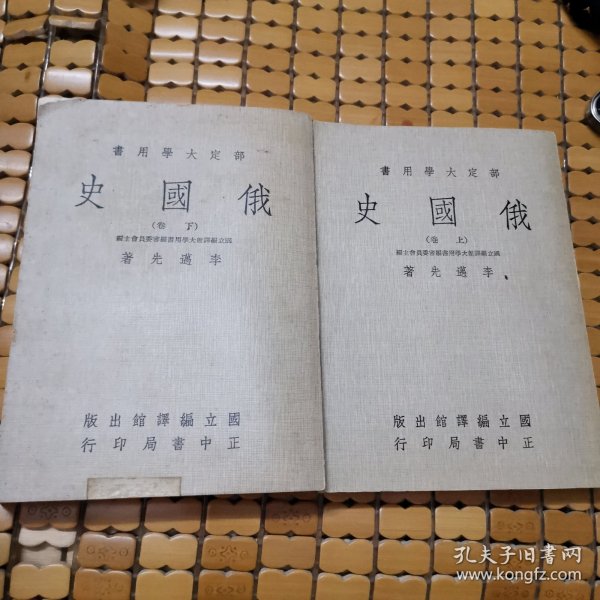 部定大學用書
俄國史
(上卷)
國立編譯館大學用書編審委員會主編
李邁先著
國立編譯館出版
正中書局印行
部定大學用書
俄國史
(下卷)
國立編譯館大學用書編審委員會主編
李邁先著
國立編譯館出版
正中書局印行
孔夫子旧書网
www.kongfz.com